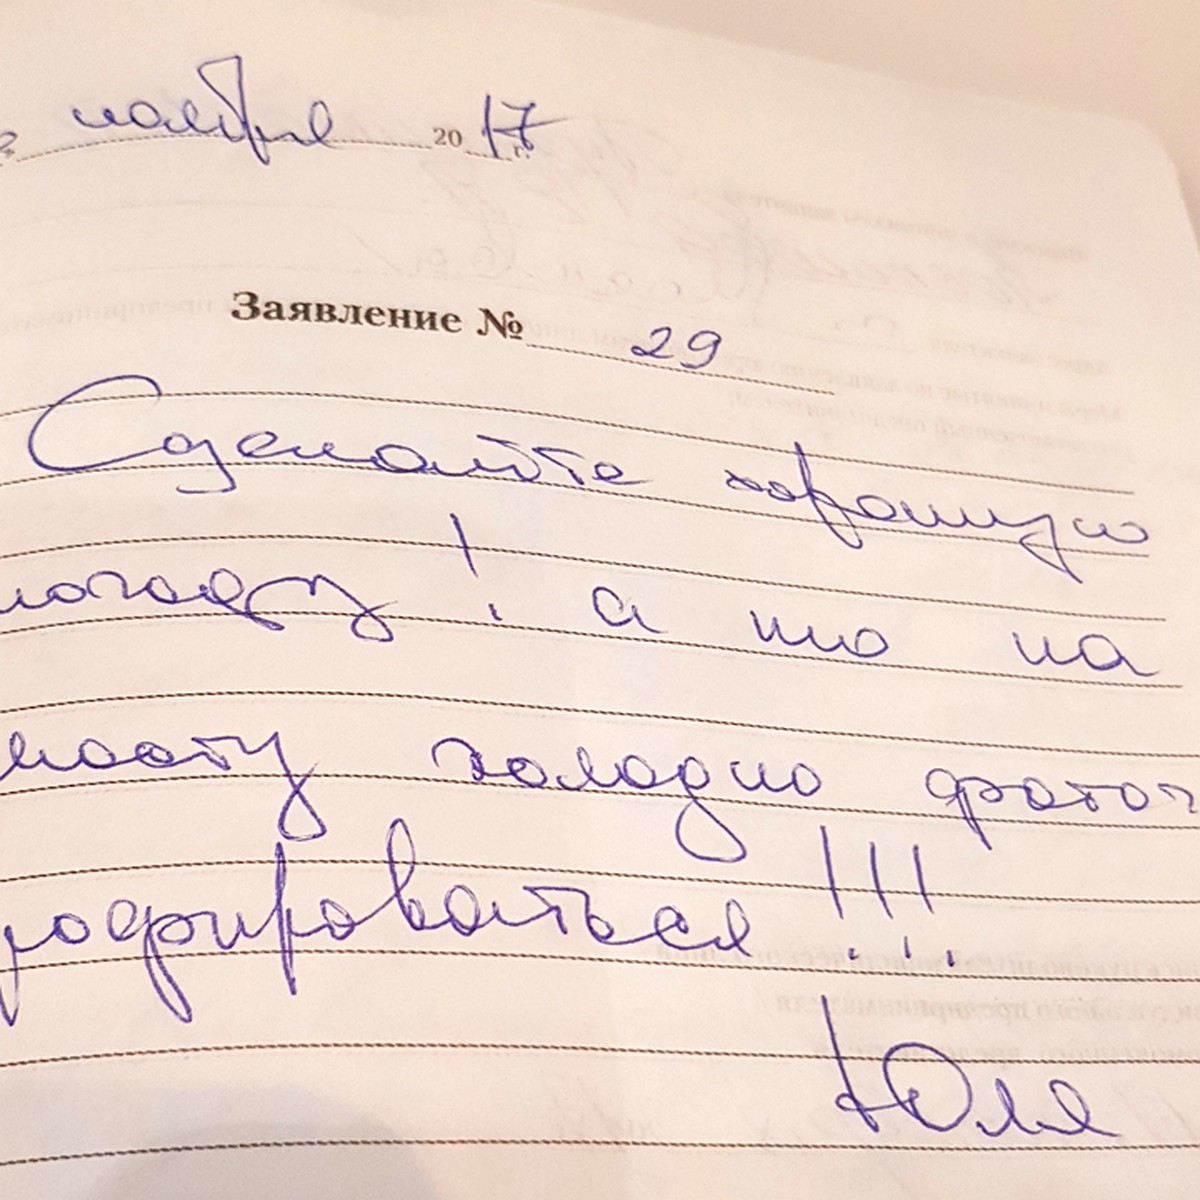 ноября 2017 г.
Заявление № 29
Сделайте хорошую
погоду! а то на
мосту холодно фотог
рофироваться!!!
Юля